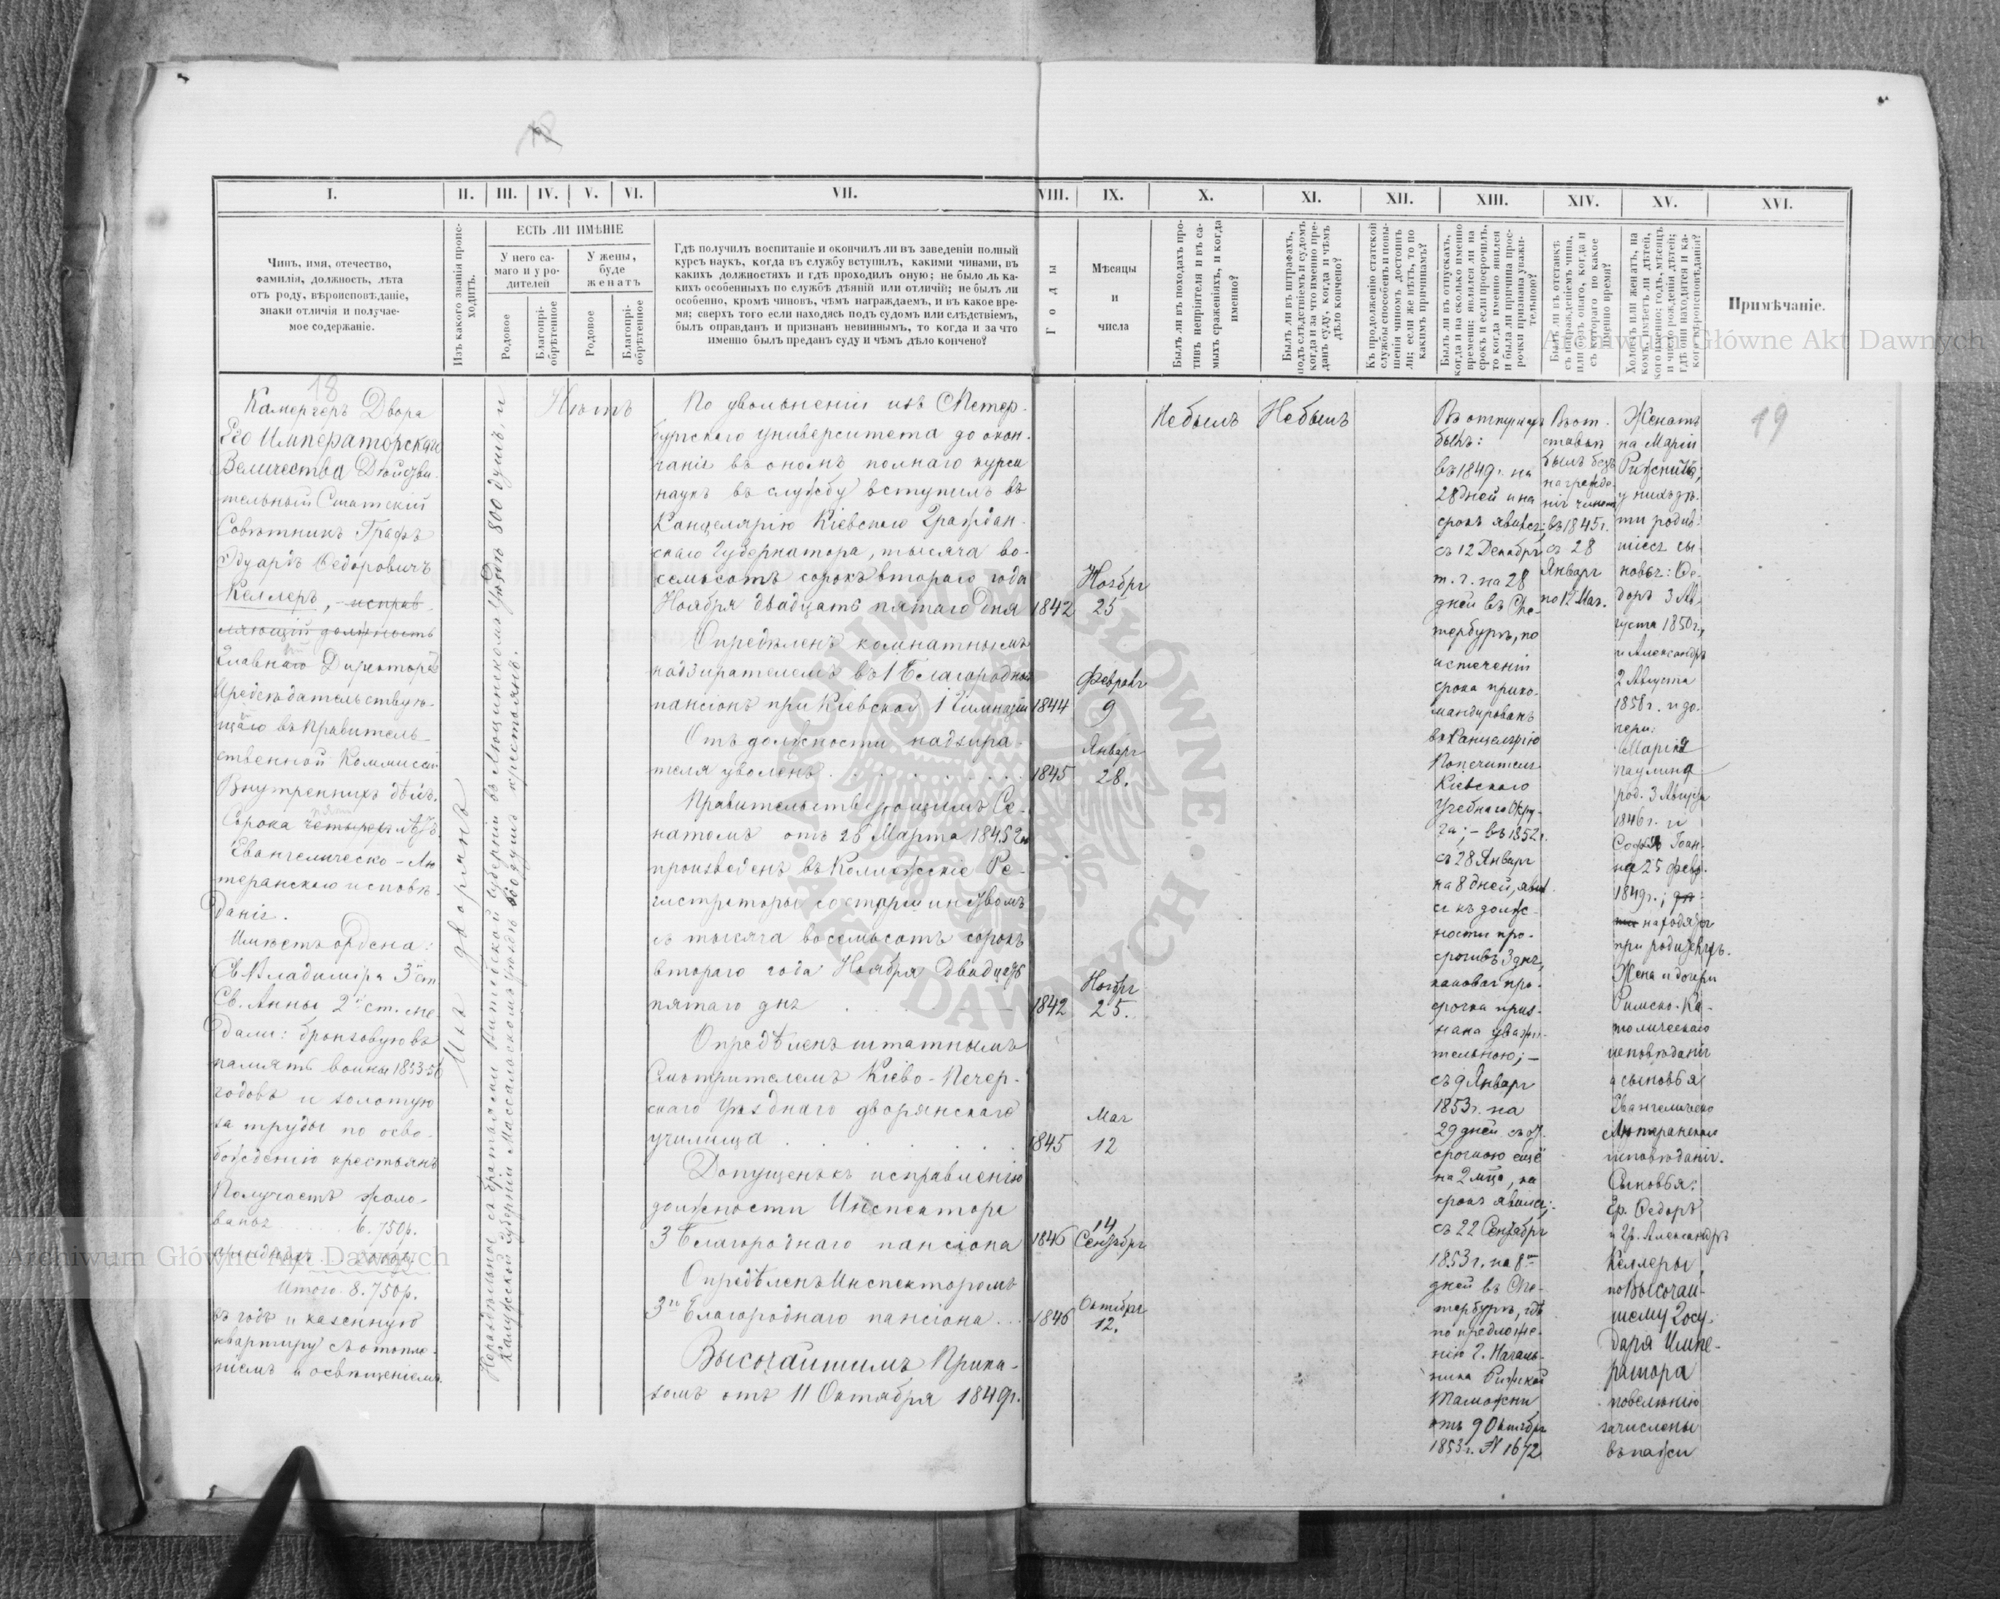 I.
II.
III.
IV.
V.
VI.
VII.
VIII.
IX.
X.
XI.
XII.
XIII.
XIV.
XV.
XVI.
Чинъ, имя, отчество,
фамилія, должность, лѣта
отъ роду, вѣроисповѣданіе,
знаки отличія и получае-
мое содержаніе.
Изъ какого званія проис-
ходитъ.
ЕСТЬ ЛИ ИМѢНІЕ
У него са-
маго и у ро-
дителей
У жены,
буде
женатъ
Родовое
Благопрі-
обрѣтенное
Родовое
Благопрі-
обрѣтенное
Гдѣ получилъ воспитаніе и окончилъ ли въ заведеніи полный
курсъ наукъ, когда въ службу вступилъ, какими чинами, въ
какихъ должностяхъ и гдѣ проходилъ оную; не было ль ка-
кихъ особенныхъ по службѣ дѣяній или отличій; не былъ ли
особенно, кромѣ чиновъ, чѣмъ награждаемъ, и въ какое вре-
мя; сверхъ того если находясь подъ судомъ или слѣдствіемъ,
былъ оправданъ и признанъ невиннымъ, то когда и за что
именно былъ преданъ суду и чѣмъ дѣло кончено?
Годы
Мѣсяцы
и
числа
Былъ ли въ походахъ про-
тивъ непріятеля и въ са-
мыхъ сраженіяхъ, и когда
именно?
Былъ ли въ штрафахъ,
подъ слѣдствіемъ и судомъ
когда и за что именно пре-
данъ суду, когда и чѣмъ
дѣло кончено?
Къ продолженію статской
службы способенъ и повы-
шенія чиномъ достоинъ
ли; если же нѣтъ, то по
какимъ причинамъ?
Былъ ли въ отпускахъ,
когда и на сколько именно
времени; являлся ли на
срокъ и если просрочилъ,
то когда именно явился
и была ли причина прос-
рочки признана уважи-
тельною?
Былъ ли въ отставкѣ
съ награжденіемъ чина,
или безъ онаго, когда и
съ котораго по какое
именно время?
Холостъ или женатъ, на
комъ, имѣетъ ли дѣтей,
кого именно; годъ, мѣсяцъ
и число рожденія дѣтей;
гдѣ они находятся и ка-
кого вѣроисповѣданія?
Примѣчаніе.
18
Камергеръ Двора
Его Императорскаго
Величества Дѣйстви-
тельный Статскій
Совѣтникъ Графъ
Эдуардъ Ѳедоровичъ
Келлеръ, исправ-
ляющій должность
Главнаго Директора
Предсѣдательствую-
щаго въ Правитель-
ственной Коммисіи
Внутреннихъ дѣлъ.
Сорока четырехъ лѣтъ
Евангелическо-Лю-
теранскаго исповѣ-
данія.
Имѣетъ ордена:
Св. Владиміра 3й ст
Св. Анны 2й ст. ме-
дали: бронзовую въ
память войны 1853-56
годовъ и золотую
за труды по осво-
божденію крестьянъ
Получаетъ жало-
ванья ..... 6.750р.
Итого 8.750р.
въ годъ и казенную
квартиру съ отопле-
ніемъ и освѣщеніемъ.
Изъ дворянъ
Нераздѣльное съ братьями Витебской губерніи въ Люцинскомъ уѣздѣ 800 душъ, и
Калужской губерніи Массальскомъ уѣздѣ 600 душъ крестьянъ.
Нѣтъ
По увольненіи изъ СПетер-
бургскаго университета до окон-
чанія въ ономъ полнаго курса
наукъ въ службу вступилъ въ
Канцелярію Кіевскаго Граждан-
скаго Губернатора, тысяча во-
семьсотъ сорокъ втораго года
Ноября двадцать пятаго дня
1842
Ноября
25
Опредѣленъ комнатнымъ
надзирателемъ въ 1 Благородный
пансіонъ при Кіевской 1 Гимназіи
1844
Февраля
9
Отъ должности надзира-
теля уволенъ
1845
Января
28.
Правительствующимъ Се-
натомъ отъ 26 Марта 1845 года
произведенъ въ Коллежскіе Ре-
гистраторы со старшинствомъ
съ тысяча восемьсотъ сорокъ
втораго года Ноября двадцать
пятаго дня
1842
Ноября
25.
Опредѣленъ штатнымъ
Смотрителемъ Кіево-Печер-
скаго Уѣзднаго дворянскаго
училища
1845
Мая
12
Допущенъ къ исправленію
должности Инспектора
3 Благороднаго пансіона
1846
14
Сентября
Опредѣленъ Инспекторомъ
3го Благороднаго пансіона
1846
Октября
12.
Высочайшимъ Прика-
зомъ отъ 11 Октября 1849г.
Не былъ
Не былъ
Въ отпускахъ
былъ:
въ 1849г. на
28 дней и на
срокъ явился;
съ 12 Декабря
т. г. на 28
дней въ СПе-
тербургъ, по
истеченіи
срока прико-
мандированъ
въ Канцелярію
Попечителя
Кіевскаго
Учебнаго Окру-
га; - въ 1852г.
съ 28 Января
на 8 дней, явил-
ся къ долж-
ности про-
срочивъ 3 дня,
каковая про-
срочка приз-
нана уважи-
тельною; -
съ 9 Января
1853г. на
29 дней съ от-
срочкою ещё
на 2 мѣс., на
срокъ явился;
съ 22 Сентября
1853г. на 8
дней въ СПе-
тербургъ, гдѣ
по предложе-
нію Г. Началь-
ника Рижской
Таможни
отъ 9 Октября
1853г. № 1672
Въ от-
ставкѣ
былъ безъ
награжде-
нія чиномъ
въ 1845г.
съ 28
Января
по 12 Мая.
Женатъ
на Маріи
Ризничъ;
у нихъ дѣ-
ти родив-
шіеся сы-
новья: Ѳе-
доръ 3 Ав-
густа 1850г.,
и Александръ
2 Августа
1858г. и до-
чери:
Марія
Паулина
род. 3 Августа
1846г. и
Софья Іоан-
на 25 Февр.
1849г.;
находятся
при родителяхъ.
Жена и дочери
Римско-Ка-
толическаго
исповѣданія
а сыновья
Евангелическо
Лютеранскаго
исповѣданія.
Сыновья:
Гр. Ѳедоръ
и Гр. Александръ
Келлеры,
по Высочай-
шему Госу-
даря Импе-
ратора
повелѣнію
зачислены
въ пажи
19
Archiwum Główne Akt Dawnych
Archiwum Główne Akt Dawnych
ARCHIWUM GŁÓWNE
AKT DAWNYCH